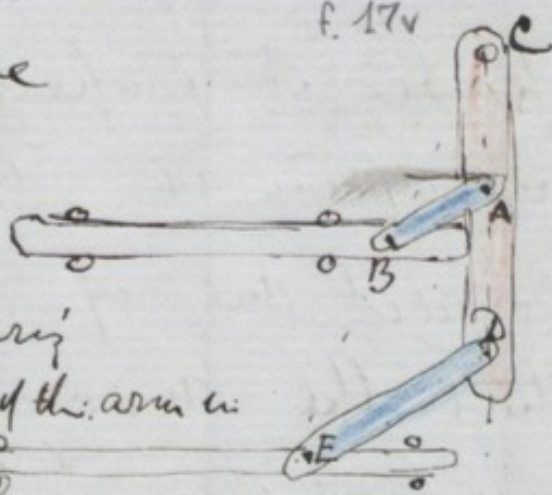 f. 17v
C
A
B
D
of the arm in
E